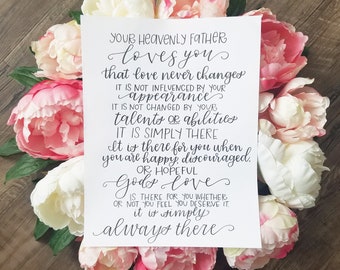 YOUR HEAVENLY FATHER
loves you
that love never changes
IT IS NOT INFLUENCED BY YOUR
appearance
IT IS NOT CHANGED BY YOUR
talents or abilities
IT IS SIMPLY THERE
It is there for you when
you are happy, discouraged,
OR HOPEFUL
God's Love
IS THERE FOR YOU WHETHER
OR NOT YOU FEEL YOU DESERVE IT
it is simply
always there